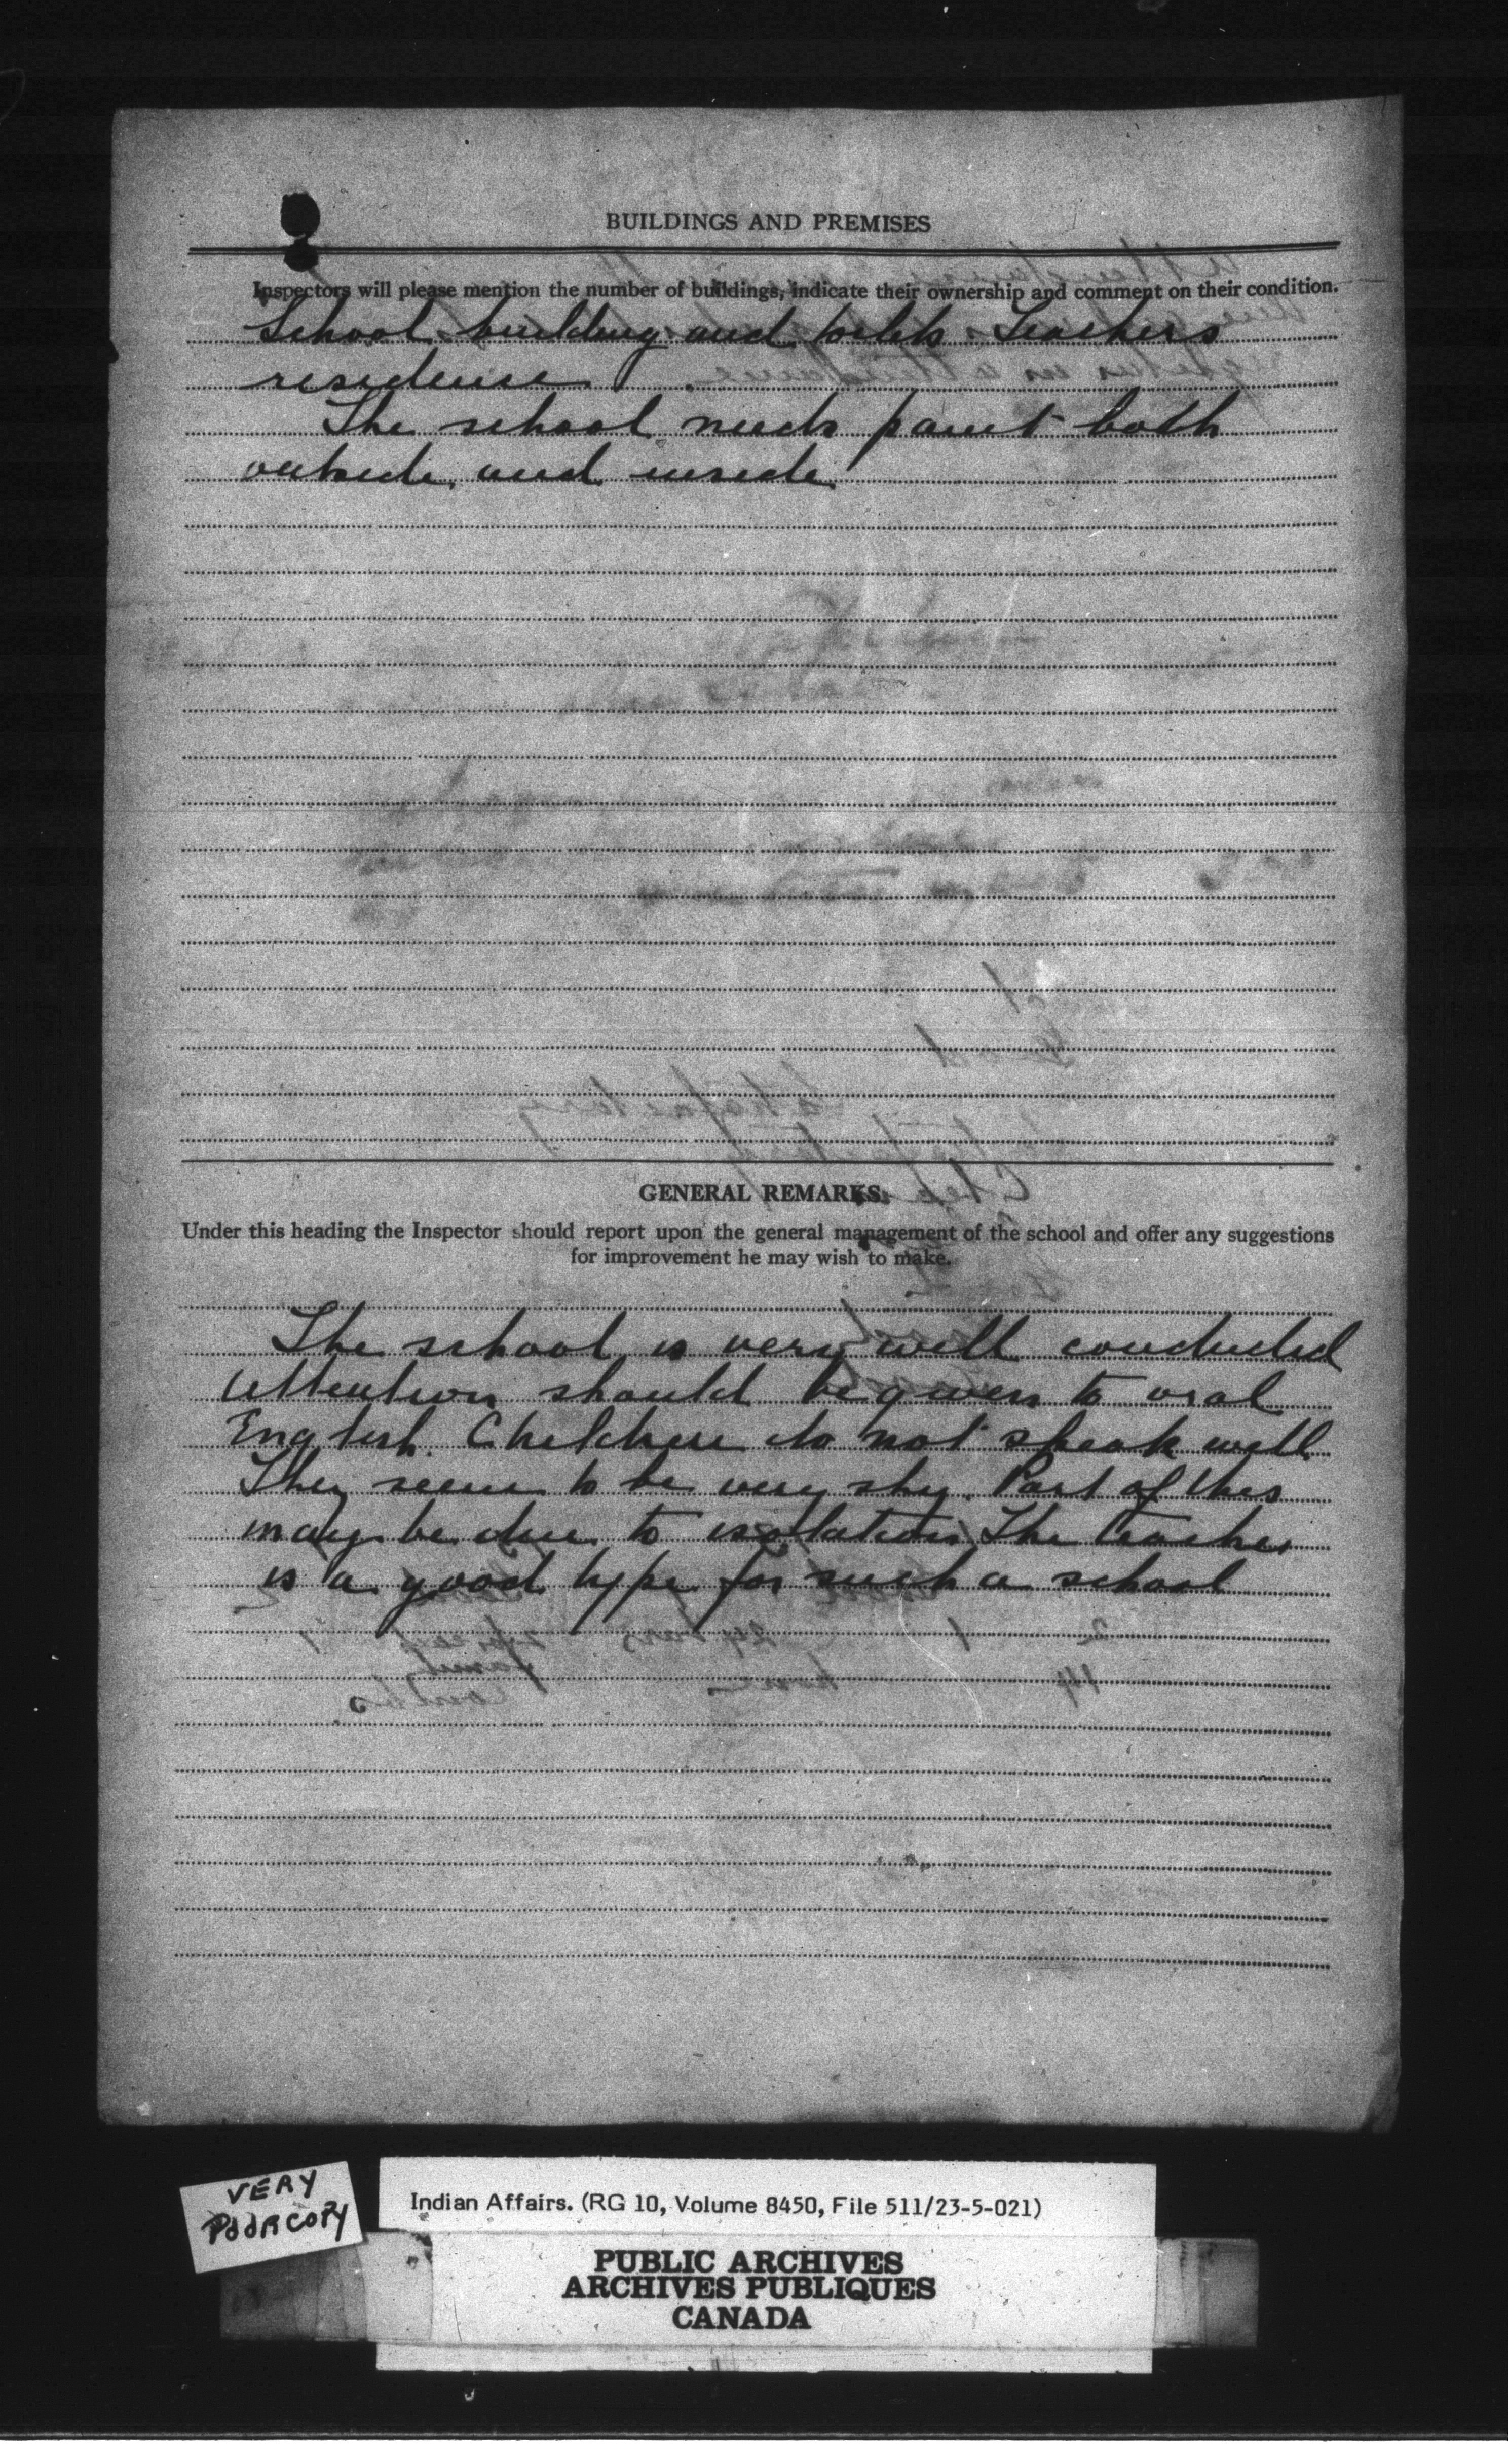 BUILDINGS AND PREMISES
Inspectors will please mention the number of buildings, indicate their ownership and comment on their condition.
School building and toilets. Teachers
residence.
The school needs paint both
outside and inside
GENERAL REMARKS.
Under this heading the Inspector should report upon the general management of the school and offer any suggestions
for improvement he may wish to make.
The school is very well conducted
Attention should be given to oral
English. Children do not speak well
They seem to be very shy. Part of this
may be due to isolation. The teacher
is a good type for such a school
VERY
POOR COPY
Indian Affairs. (RG 10, Volume 8450, File 511/23-5-021)
PUBLIC ARCHIVES
ARCHIVES PUBLIQUES
CANADA